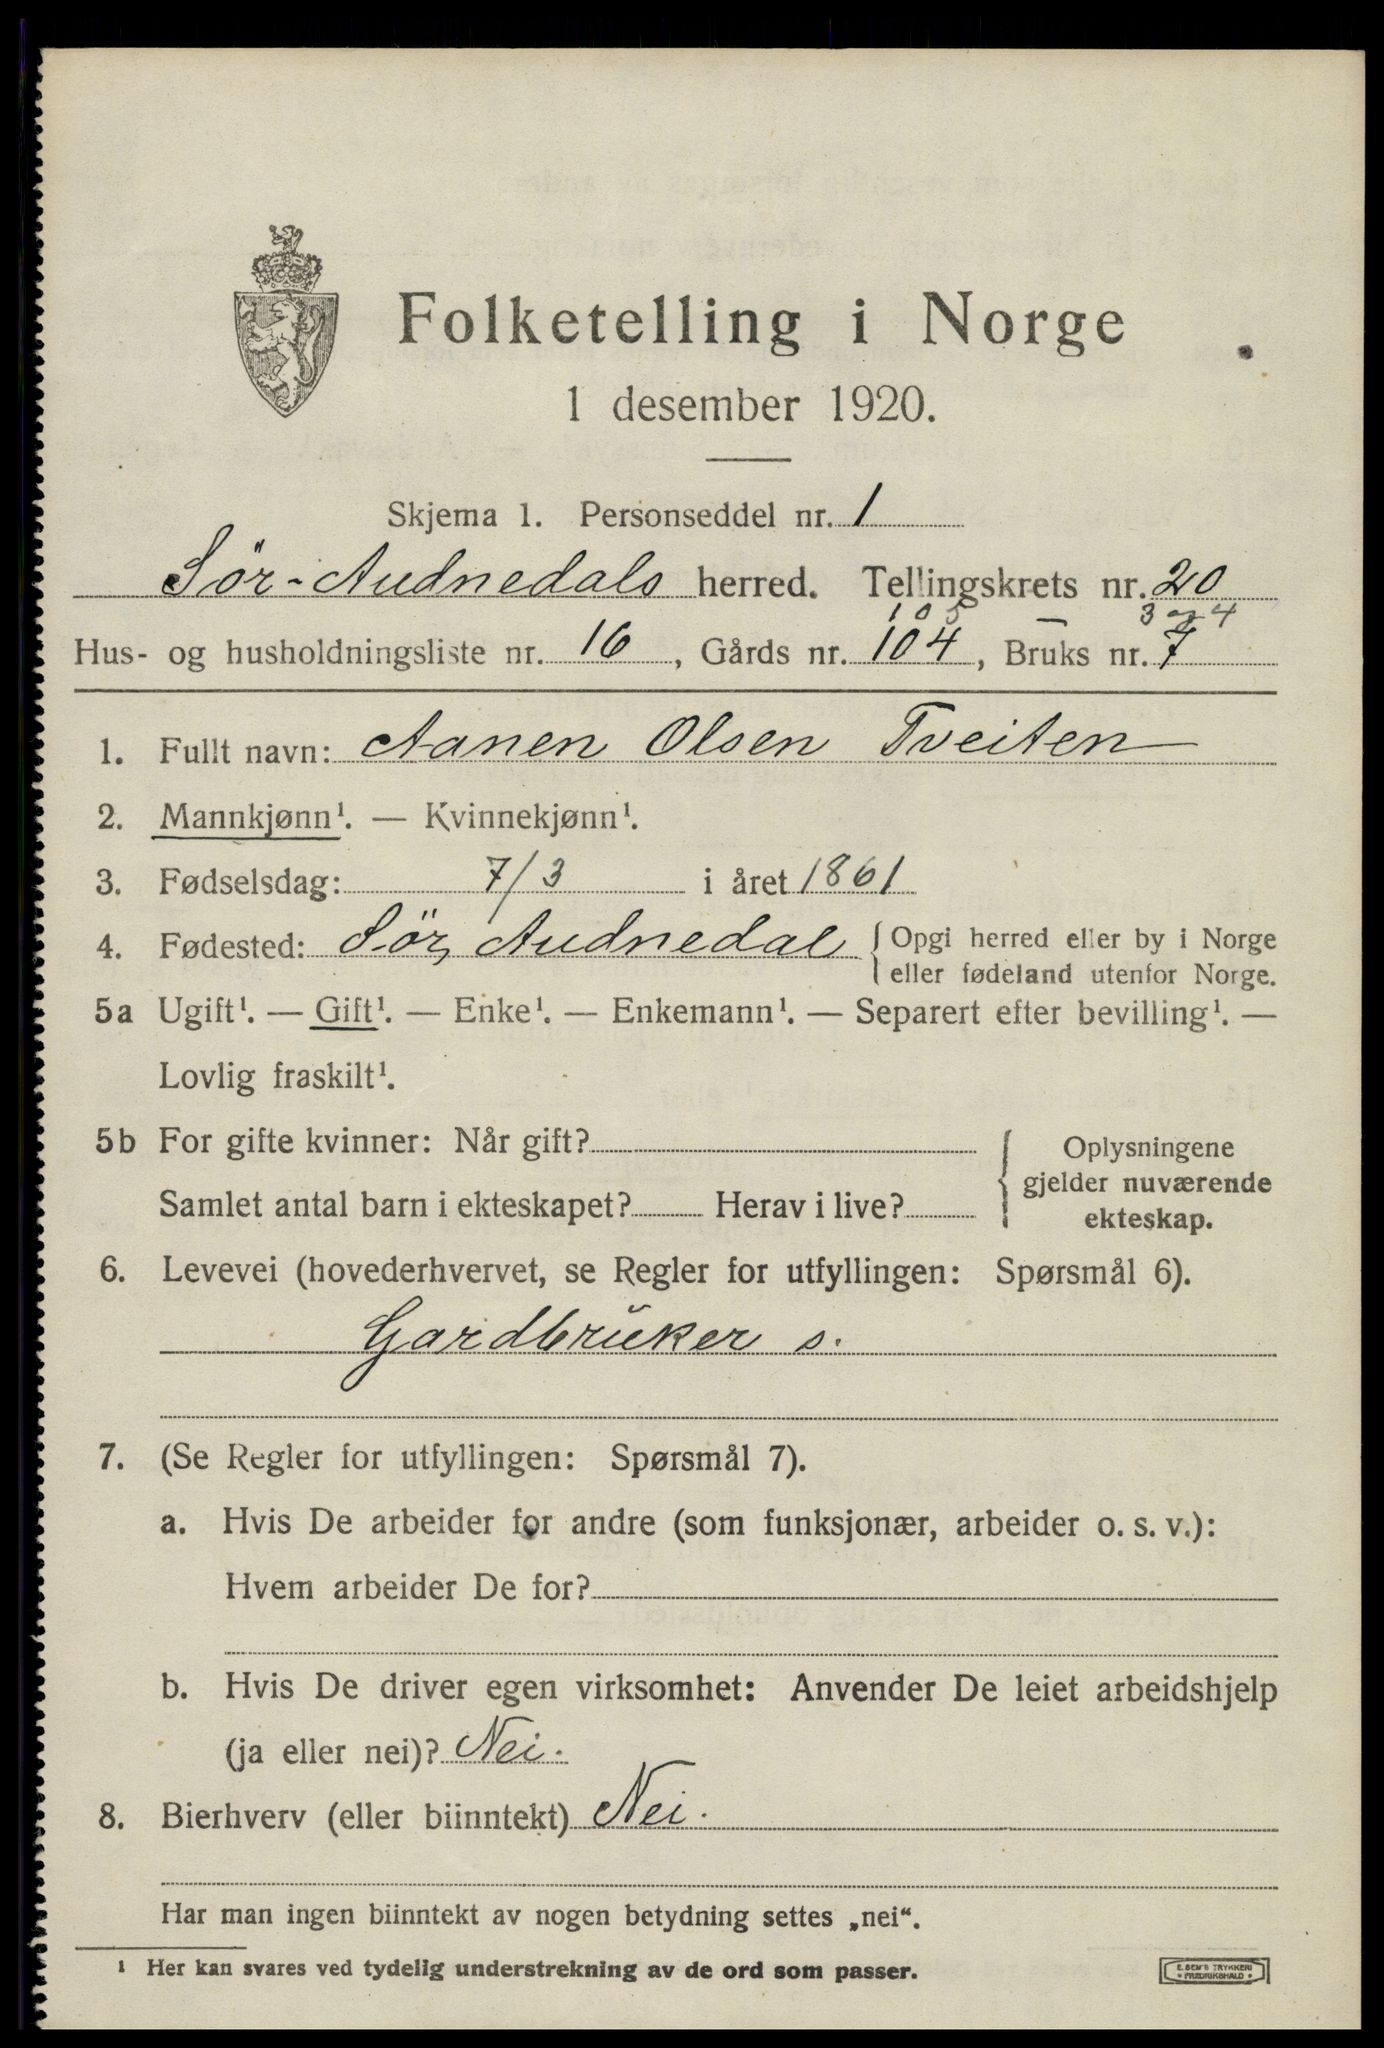 Folketelling i Norge
1 desember 1920.
Skjema 1. Personseddel nr. 1
Sör-Audnedals herred. Tellingskrets nr. 20
105 3 og 4
Hus- og husholdningsliste nr. 16, Gårds nr. 104, Bruks nr. 7
1. Fullt navn: Aanen Olsen Tveiten
2. Mannkjønn¹. — Kvinnekjønn¹.
3. Fødselsdag: 7/3 i året 1861
4. Fødested: Sör Audnedal { Opgi herred eller by i Norge
eller fødeland utenfor Norge.
5a Ugift¹. — Gift¹. — Enke¹. — Enkemann¹. — Separert efter bevilling¹. —
Lovlig fraskilt¹.
5b For gifte kvinner: Når gift?
Samlet antal barn i ekteskapet? Herav i live?
{ Oplysningene
gjelder nuværende
ekteskap.
6. Levevei (hovederhvervet, se Regler for utfyllingen: Spørsmål 6).
Gardbrüker s.
7. (Se Regler for utfyllingen: Spørsmål 7).
a. Hvis De arbeider for andre (som funksjonær, arbeider o. s. v.):
Hvem arbeider De for?
b. Hvis De driver egen virksomhet: Anvender De leiet arbeidshjelp
(ja eller nei)? Nei.
8. Bierhverv (eller biinntekt) Nei.
Har man ingen biinntekt av nogen betydning settes „nei“.
¹ Her kan svares ved tydelig understrekning av de ord som passer.
E. SEM'S TRYKKERI
• FREDRIKSHALD •